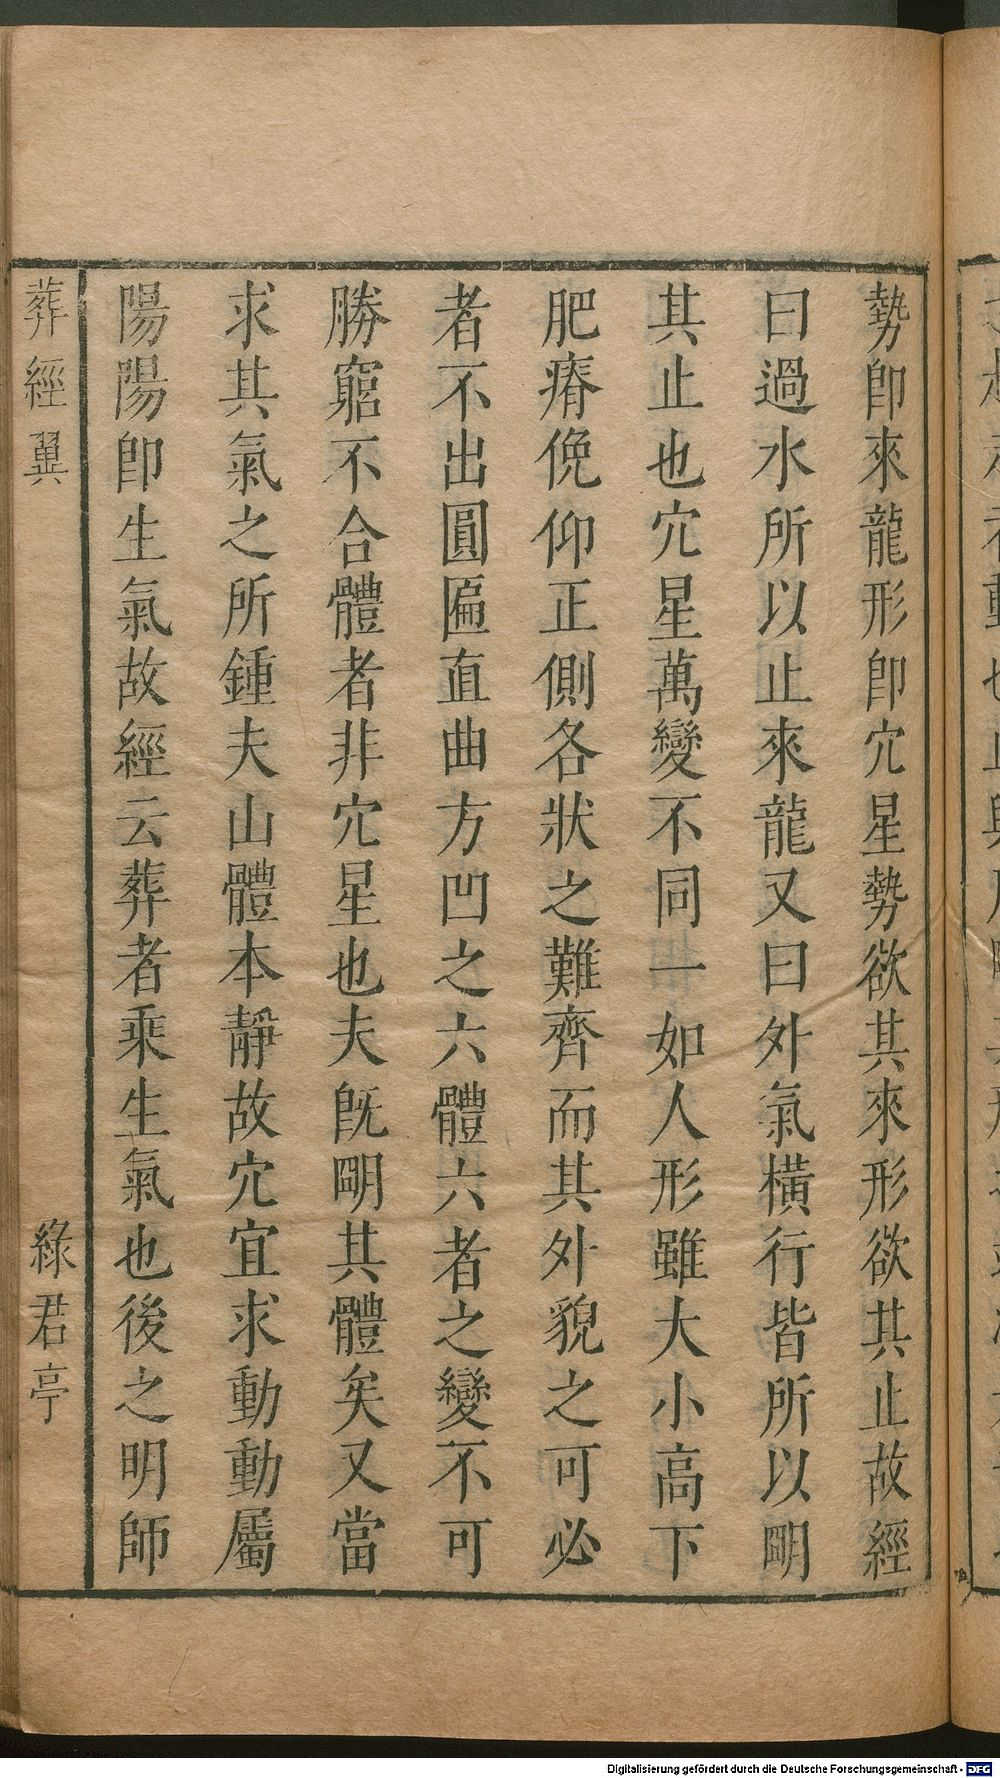 勢卽來龍形卽穴星勢欲其來形欲其止故經
曰過水所以止來龍又曰外氣橫行皆所以明
其止也穴星萬變不同一如人形雖大小高下
肥瘠俛仰正側各狀之難齊而其外貌之可必
者不出圓匾直曲方凹之六體六者之變不可
勝窮不合體者非穴星也夫旣明其體矣又當
求其氣之所鍾夫山體本靜故穴宜求動動屬
陽陽卽生氣故經云葬者乘生氣也後之明師
葬經翼
綠君亭
Digitalisierung gefördert durch die Deutsche Forschungsgemeinschaft - DFG